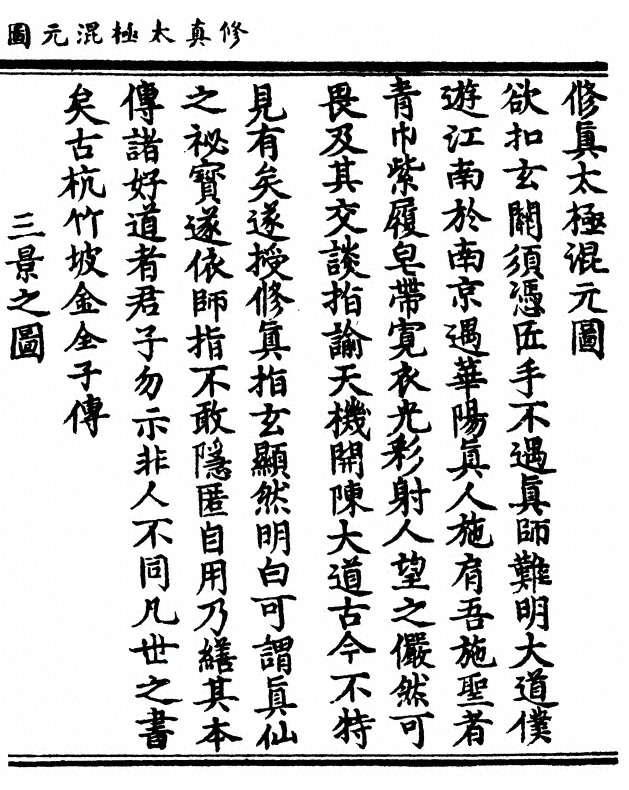 修真太極混元圖
修眞太極混元圖
欲扣玄關須憑匠手不遇眞師難明大道僕
遊江南於南京遇華陽眞人施肩吾施聖者
青巾紫履皂帶寬衣光彩射人望之儼然可
畏及其交談指諭天機開陳大道古今不特
見有矣遂授修眞指玄顯然明白可謂眞仙
之祕寶遂依師指不敢隱匿自用乃繕其本
傳諸好道者君子勿示非人不同凡世之書
矣古杭竹坡金全子傳
三景之圖